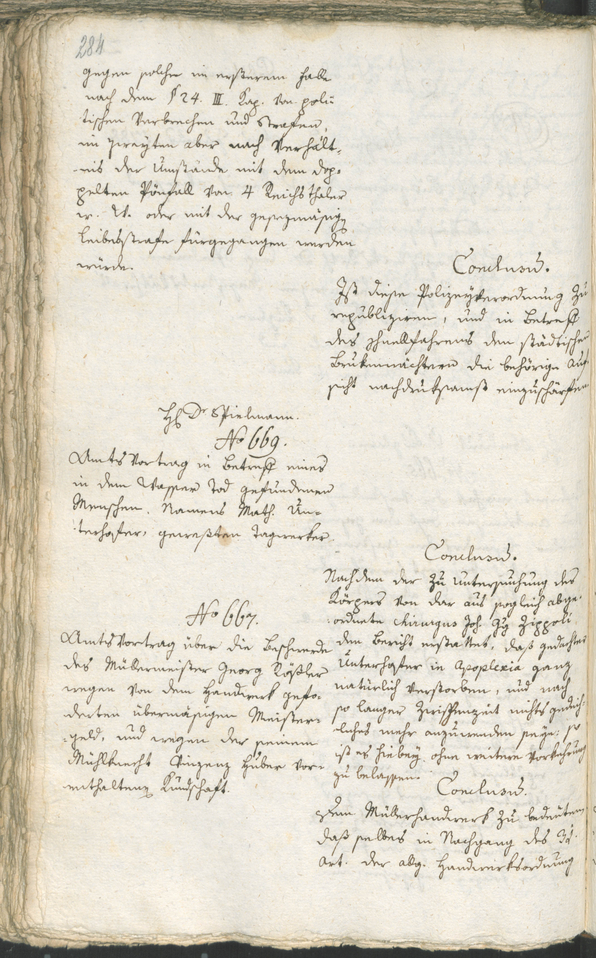 284
gegen solche im ersteren Falle
nach dem § 24. III. Kap. von poli¬
tischen Verbrechen und Strafen,
im zweyten aber nach Verhält¬
nis der Umstände mit dem dop¬
pelten Pönfall von 4 Reichsthaler
oder mit der gesezmäsigen
Leibesstrafe fürgegangen werden
würde.
Conclusum.
Ist diese Polizeyverordnung zu
republiziren, und in Betreff
des Schnellfahrens den städtischen
Brukenwächtern die behörige Auf¬
sicht nachdruksamst einzuschärffen
H. Dr. Spielmann.
No 669.
AmtsVortrag in Betreff eines
in dem Wasser Tod gefundenen
Menschen, Namens Math. Un¬
terhofer, gewesten Tagwerker
Conclusum.
Nachdem der zu Untersuchung des
Körpers von dar aus sogleich abge¬
ordnete Chirurgus Joh. Zippoli
den Bericht erstattet, daß gedachter
Unterhofer in Apoplexia ganz
natürlich verstorben, und nach
so langer Zwischenzeit nichts gedeih¬
liches mehr anzuwenden seye; so
ist es hiebey ohne weitere Vorkehrung
zu belassen.
No 667.
AmtsVortrag über die Beschwerde
des Müllermeister Georg Rößler
wegen von dem Handwerk gefo¬
derten übermäsigen Meister¬
geld, und wegen der seinem
Mühlknecht Vinzenz Huber vor¬
enthaltenen Kundschaft.
Conclusum.
Dem Müllerhandwerk zu bedeuten
daß selbes in Nachgang des
Art. der allg. Handwerksordnung